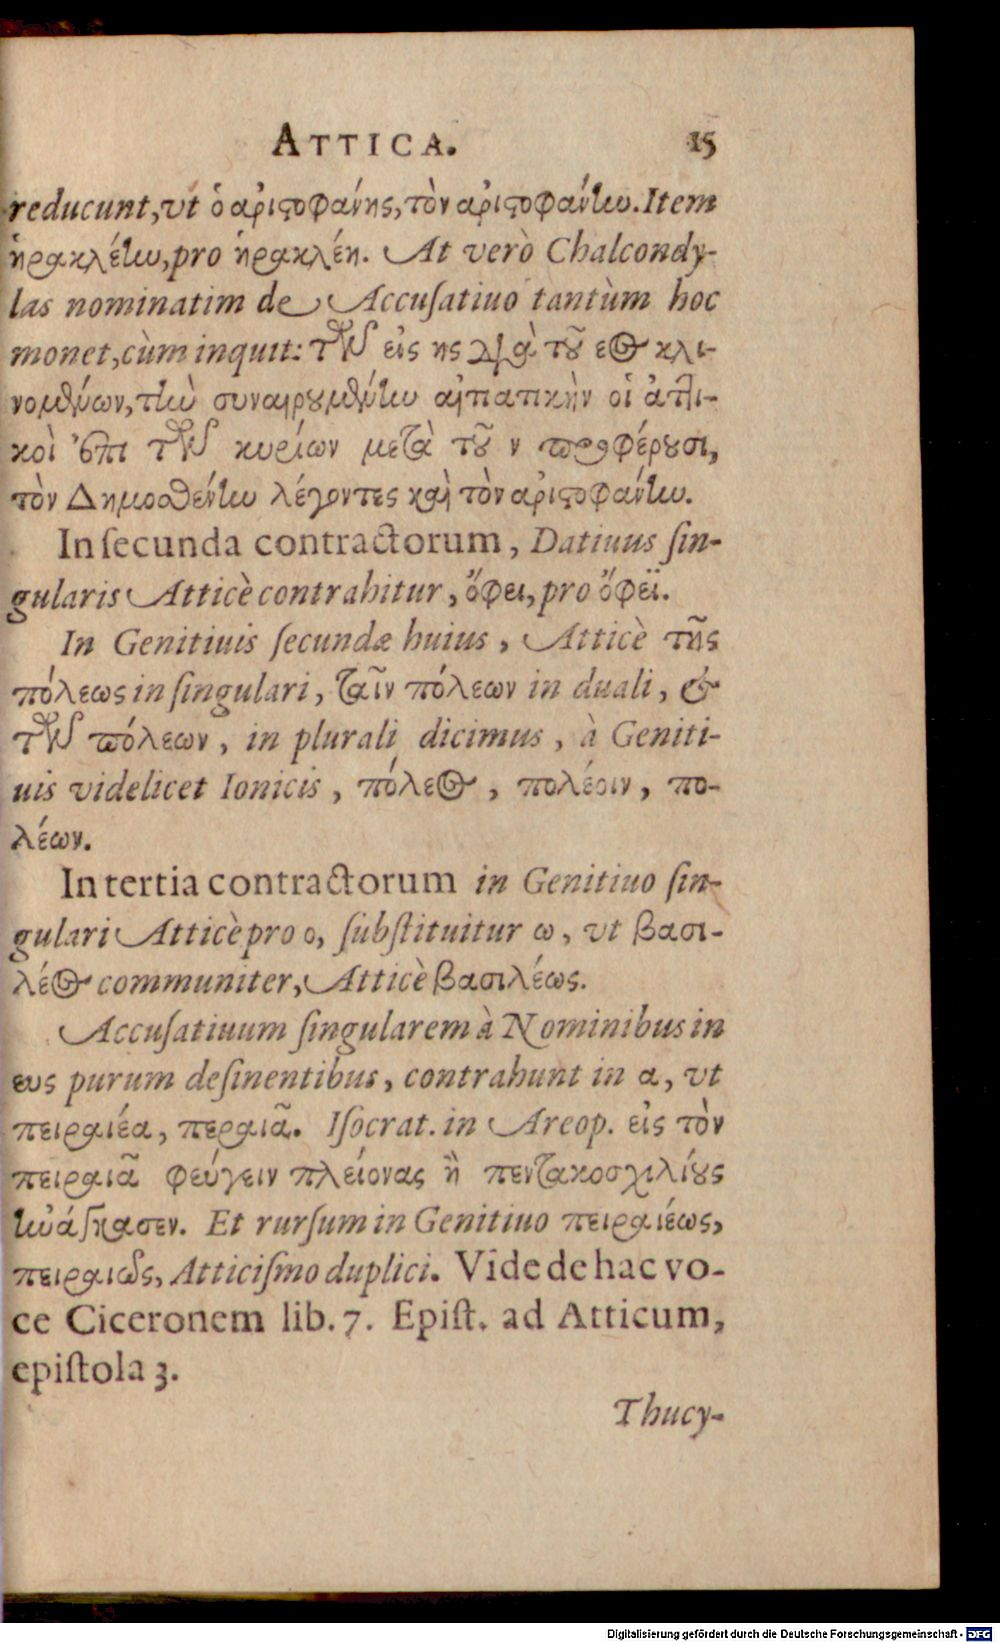 ATTICA. 15
reducunt, vt ὁ ἀριστοφάνης, τὸν ἀριστοφάνην. Item
ἡρακλέην, pro ἡρακλέη. At verò Chalcondy-
las nominatim de Accuſatiuo tantùm hoc
monet, cùm inquit: τῶν εἰς ης διὰ τοῦ εος κλι-
νομένων, τὴν συναιρουμένην αἰτιατικὴν οἱ ἀττι-
κοὶ ἐπὶ τῶν κυρίων μετὰ τοῦ ν προφέρουσι,
τὸν Δημοσθένην λέγοντες καὶ τὸν ἀριστοφάνην.
In ſecunda contractorum, Datiuus ſin-
gularis Atticè contrahitur, ὄφει, pro ὄφεϊ.
In Genitiuis ſecundæ huius, Atticè τῆς
πόλεως in ſingulari, ταῖν πόλεων in duali, &
τῶν πόλεων, in plurali dicimus, à Geniti-
uis videlicet Ionicis, πόλεος, πολέοιν, πο-
λέων.
In tertia contractorum in Genitiuo ſin-
gulari Atticè pro ο, ſubſtituitur ω, vt βασι-
λέος communiter, Atticè βασιλέως.
Accuſatiuum ſingularem à Nominibus in
ευς purum deſinentibus, contrahunt in α, vt
πειραιέα, περαιᾶ. Iſocrat. in Areop. εἰς τὸν
πειραιᾶ φεύγειν πλείονας ἢ πεντακοσχιλίους
ἠνάγκασεν. Et rurſum in Genitiuo πειραιέως,
πειραιῶς, Atticiſmo duplici. Vide de hac vo-
ce Ciceronem lib. 7. Epiſt. ad Atticum,
epiſtola 3.
Thucy-
Digitalisierung gefördert durch die Deutsche Forschungsgemeinschaft - DFG